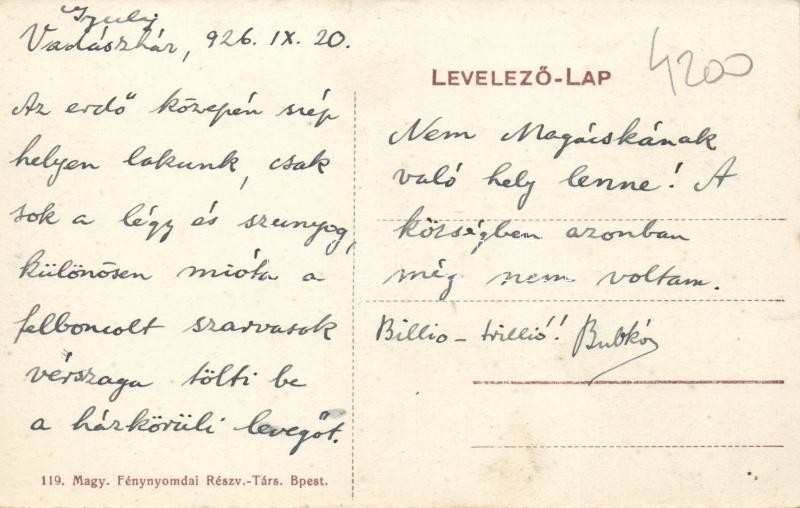 Gyulaj
Vadászház, 926. IX. 20.
Az erdő közepén szép
helyen lakunk, csak
sok a légy és szunyog,
különösen mióta a
felboncolt szarvasok
vérszaga tölti be
a házkörüli levegőt.
119. Magy. Fénynyomdai Részv.-Társ. Bpest.
LEVELEZŐ-LAP
4200
Nem Magácskának
való hely lenne! A
községben azonban
még nem voltam.
Billio - trillió!! Bubkó